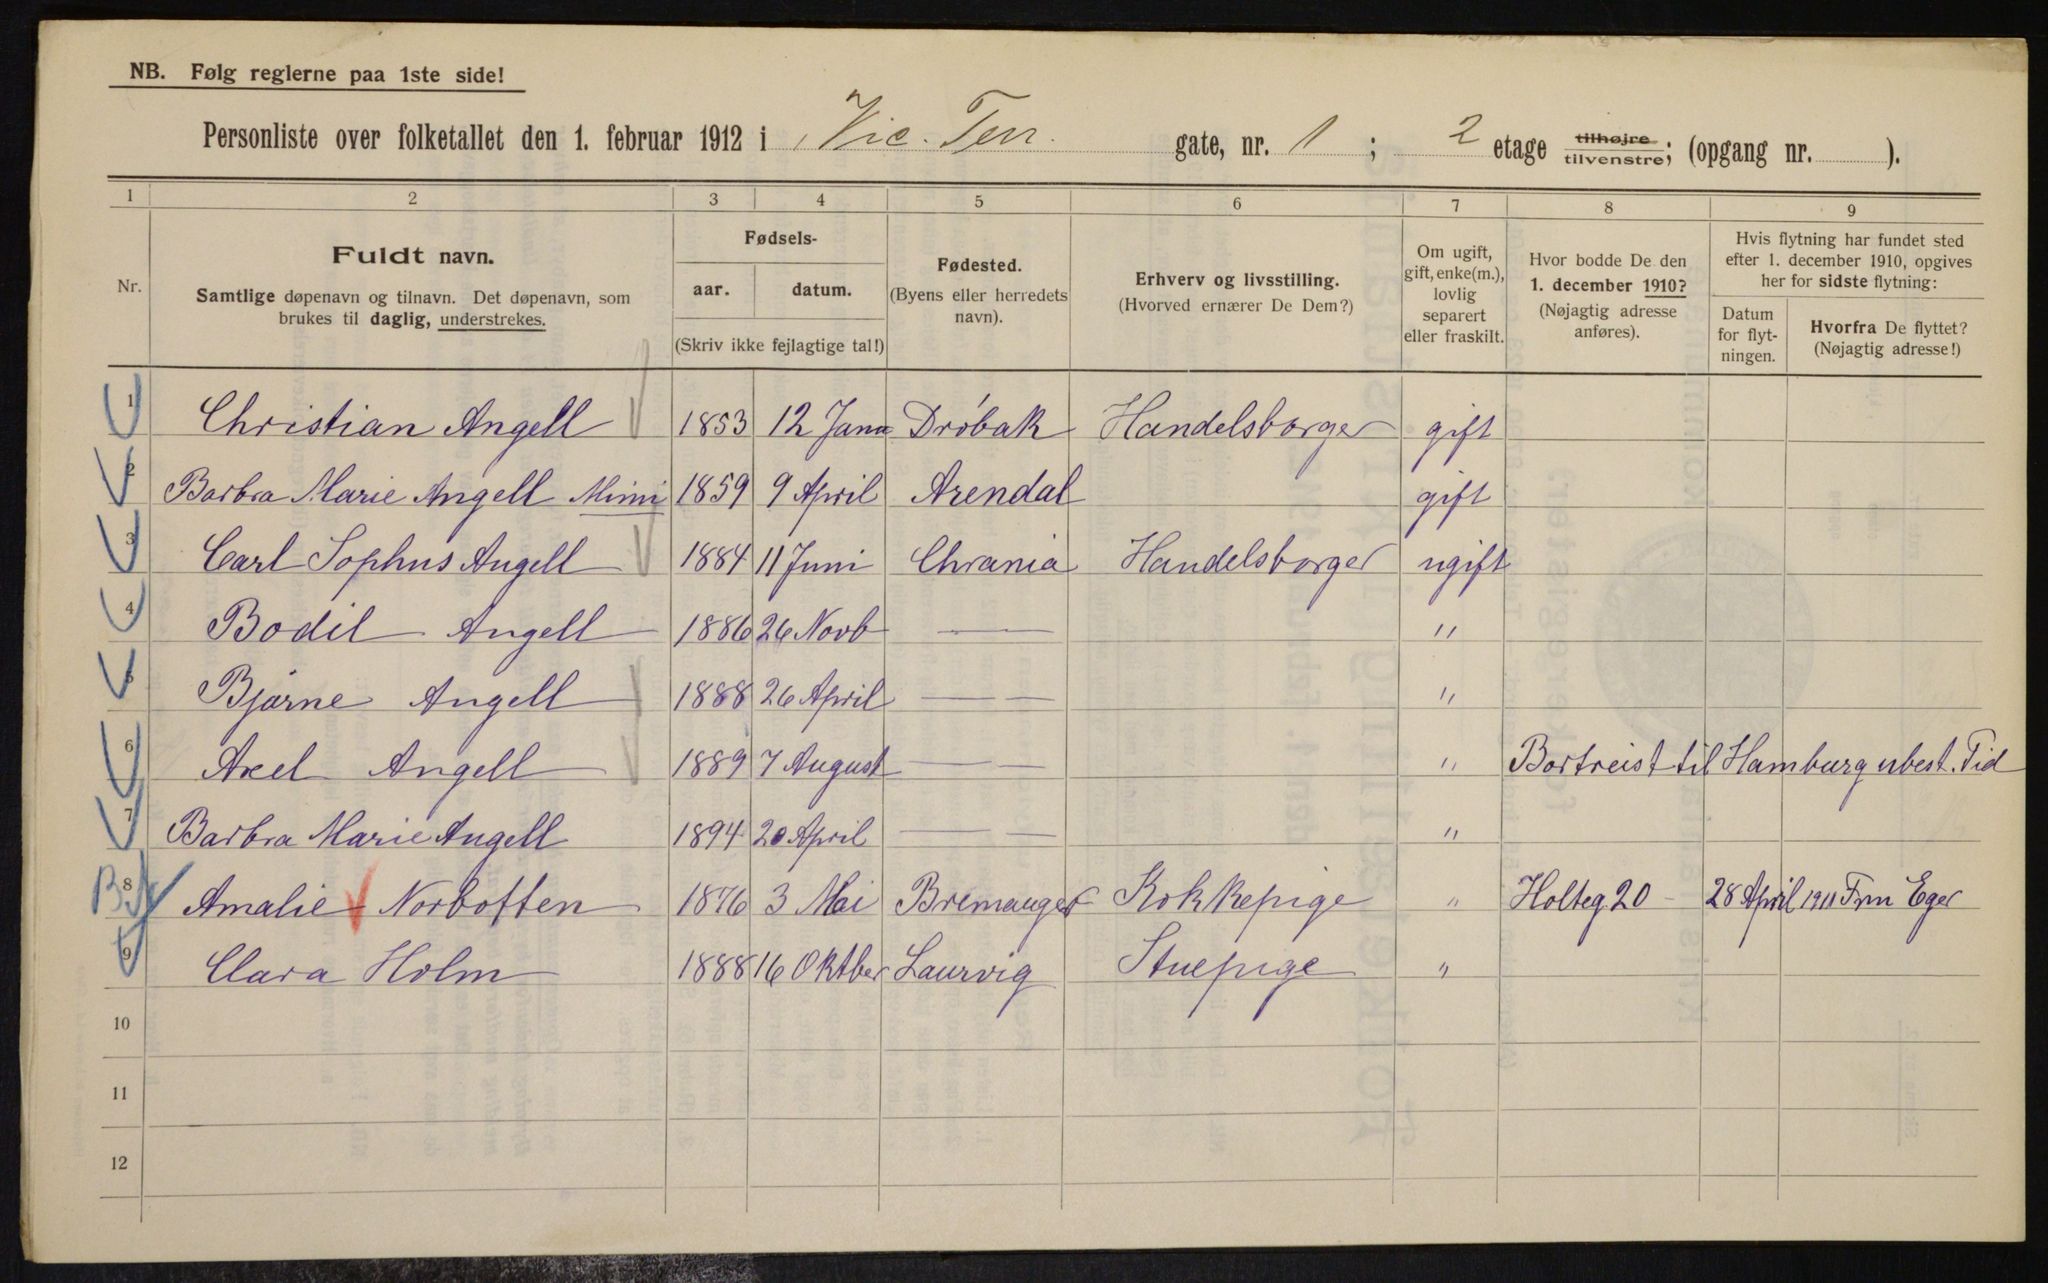 NB. Følg reglerne paa 1ste side!
Personliste over folketallet den 1. februar 1912 i Vic. Terr. gate, nr. 1 ; 2 etage tilhøjre tilvenstre; (opgang nr. ).
1 2 3 4 5 6 7 8 9
Nr.
Fuldt navn.
Samtlige døpenavn og tilnavn. Det døpenavn, som
brukes til daglig, understrekes.
Fødsels-
aar. datum.
(Skriv ikke fejlagtige tal!)
Fødested.
(Byens eller herredets
navn).
Erhverv og livsstilling.
(Hvorved ernærer De Dem?)
Om ugift,
gift, enke(m.),
lovlig
separert
eller fraskilt.
Hvor bodde De den
1. december 1910?
(Nøjagtig adresse
anføres).
Hvis flytning har fundet sted
efter 1. december 1910, opgives
her for sidste flytning:
Datum
for flyt-
ningen.
Hvorfra De flyttet?
(Nøjagtig adresse!)
1 Christian Angell 1853 12 Janu Dröbak Handelsborger gift
2 Barbra Marie Angell Mimi 1859 9 April Arendal gift
3 Carl Sophus Angell 1884 11 Juni Chrania Handelsborger ugift
4 Bodil Angell 1886 26 Novb — — "
5 Bjarne Angell 1888 26 April — — "
6 Axel Angell 1889 7 August — — " Bortreist til Hamburg ubest. Tid
7 Barbra Marie Angell 1894 20 April — — "
8 Amalie Norbotten 1876 3 Mai Bremanger Kokkepige " Holteg 20 28 April 1911 Frn Eger
9 Clara Holm 1888 16 Oktber Laurvig Stuepige "
10
11
12